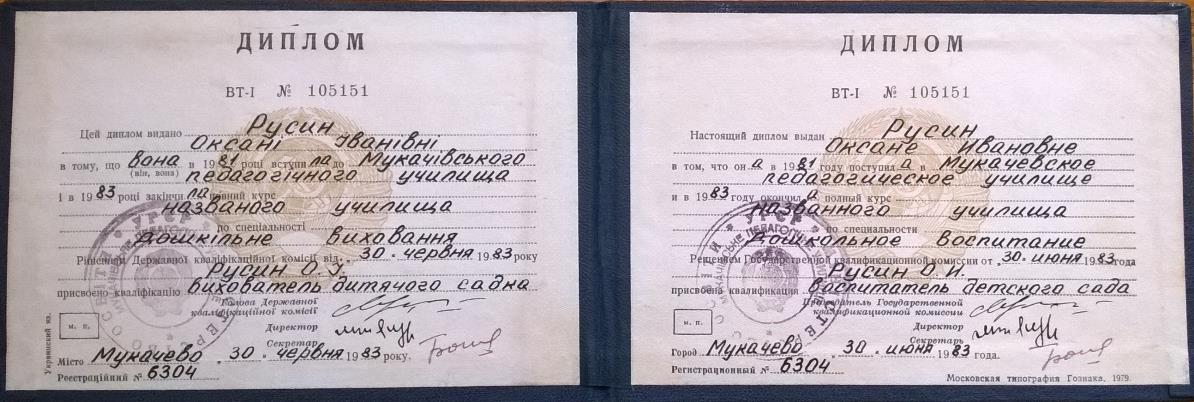 ДИПЛОМ
ВТ-I № 105151
Цей диплом видано Русин
Оксані Іванівні
в тому, що вона в 1981 році вступила до Мукачівського
(він, вона) педагогічного училища
і в 1983 році закінчила повний курс
названого училища
по спеціальності
дошкільне виховання
Рішенням Державної кваліфікаційної комісії від 30 червня 1983 року
Русин О.І.
присвоєно кваліфікацію вихователь дитячого садка
Голова Державної
кваліфікаційної комісії
Директор
Секретар
м. п.
Місто Мукачево 30 червня 1983 року.
Реєстраційний № 6304
Украинский яз.
ДИПЛОМ
ВТ-I № 105151
Настоящий диплом выдан Русин
Оксане Ивановне
в том, что она в 1981 году поступила в Мукачевское
педагогическое училище
и в 1983 году окончила полный курс
названного училища
по специальности
дошкольное воспитание
Решением Государственной квалификационной комиссии от 30 июня 1983 года
Русин О.И.
присвоена квалификация воспитатель детского сада
Председатель Государственной
квалификационной комиссии
Директор
Секретарь
м. п.
Город Мукачево 30 июня 1983 года.
Регистрационный № 6304
Московская типография Гознака. 1979.